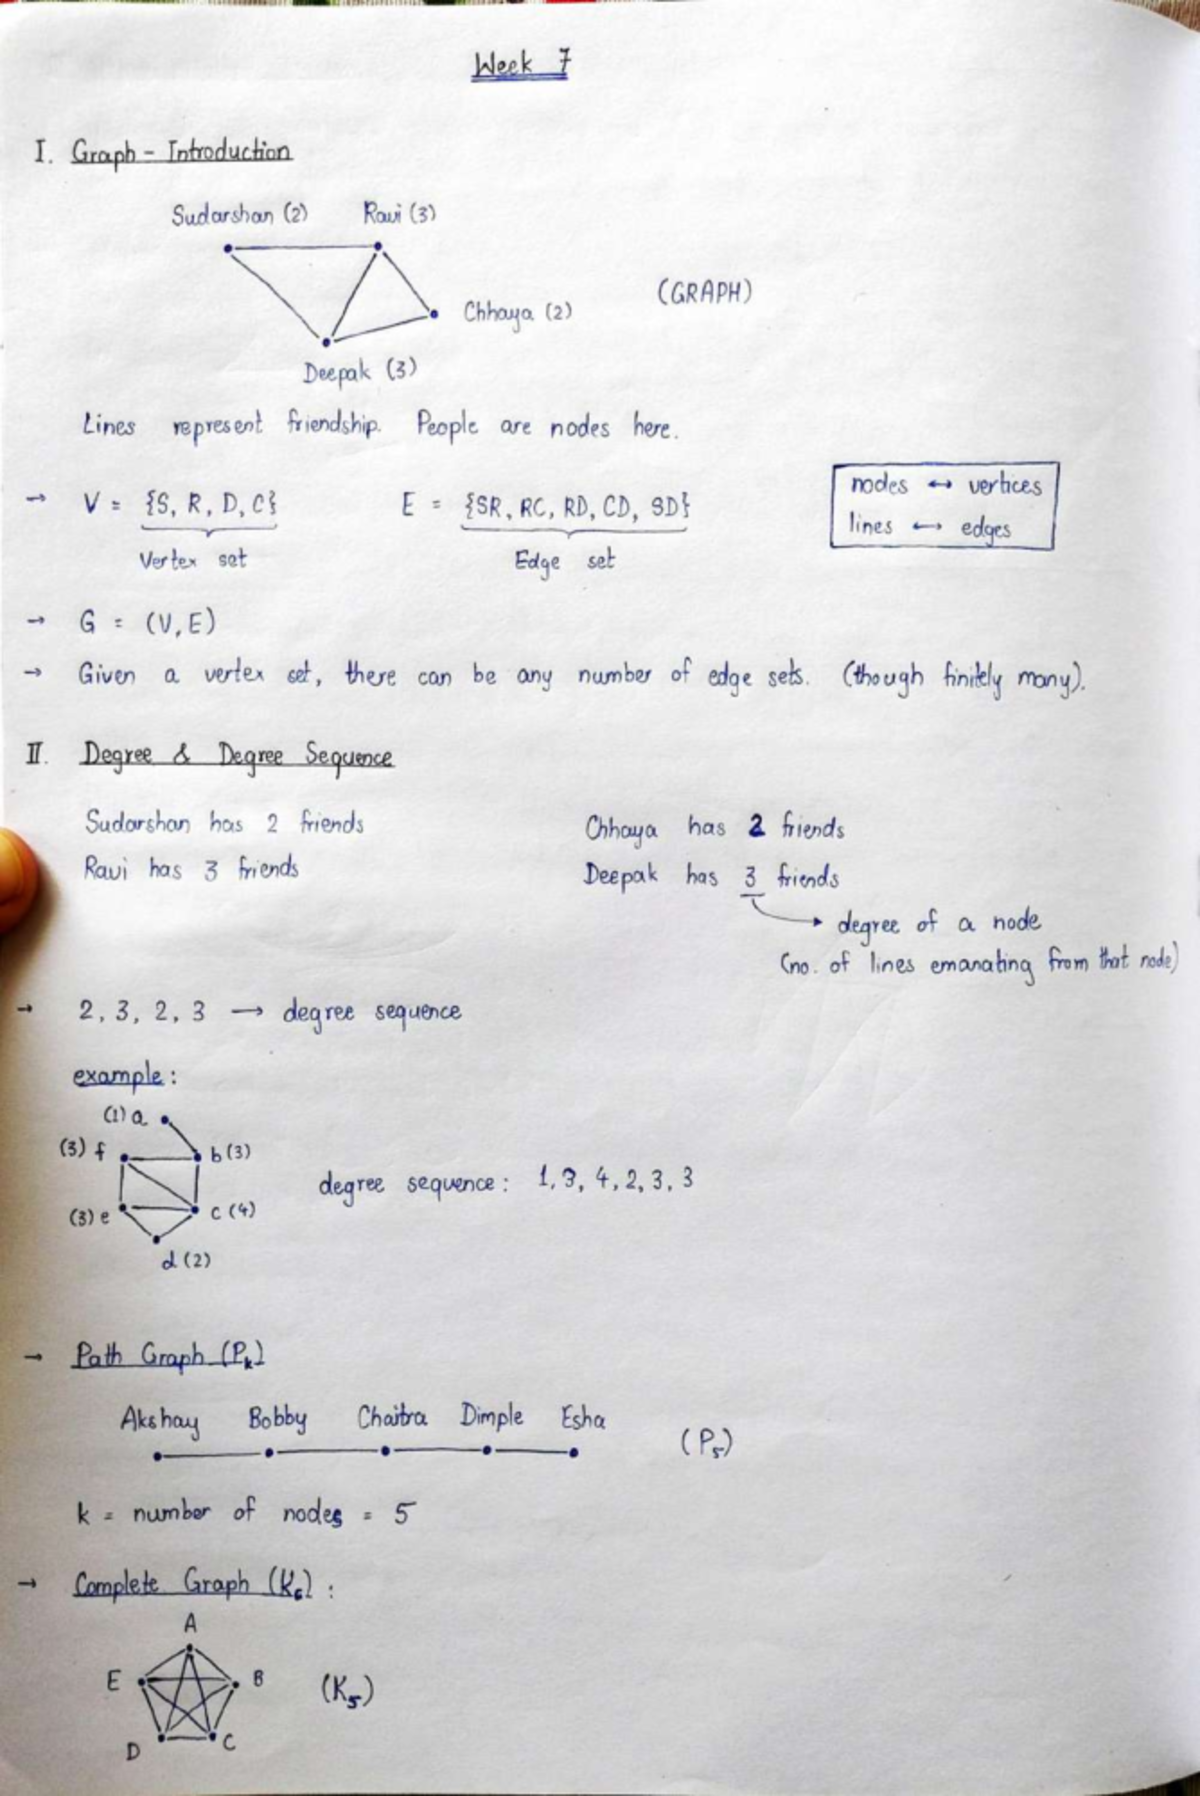 Week 7
I. Graph - Introduction
Sudarshan (2) Ravi (3)
Chhaya (2) (GRAPH)
Deepak (3)
Lines represent friendship. People are nodes here.
→ V = {S, R, D, C} E = {SR, RC, RD, CD, SD}
Vertex set Edge set
nodes ↔ vertices
lines ↔ edges
→ G = (V, E)
→ Given a vertex set, there can be any number of edge sets. (though finitely many).
II. Degree & Degree Sequence
Sudarshan has 2 friends Chhaya has 2 friends
Ravi has 3 friends Deepak has 3 friends
→ degree of a node
(no. of lines emanating from that node)
→ 2, 3, 2, 3 → degree sequence
example:
(1) a
(3) f b (3)
degree sequence: 1, 3, 4, 2, 3, 3
(3) e c (4)
d (2)
→ Path Graph (Pk)
Akshay Bobby Chaitra Dimple Esha
(P5)
k = number of nodes = 5
→ Complete Graph (K6) :
A
E B (K5)
D C